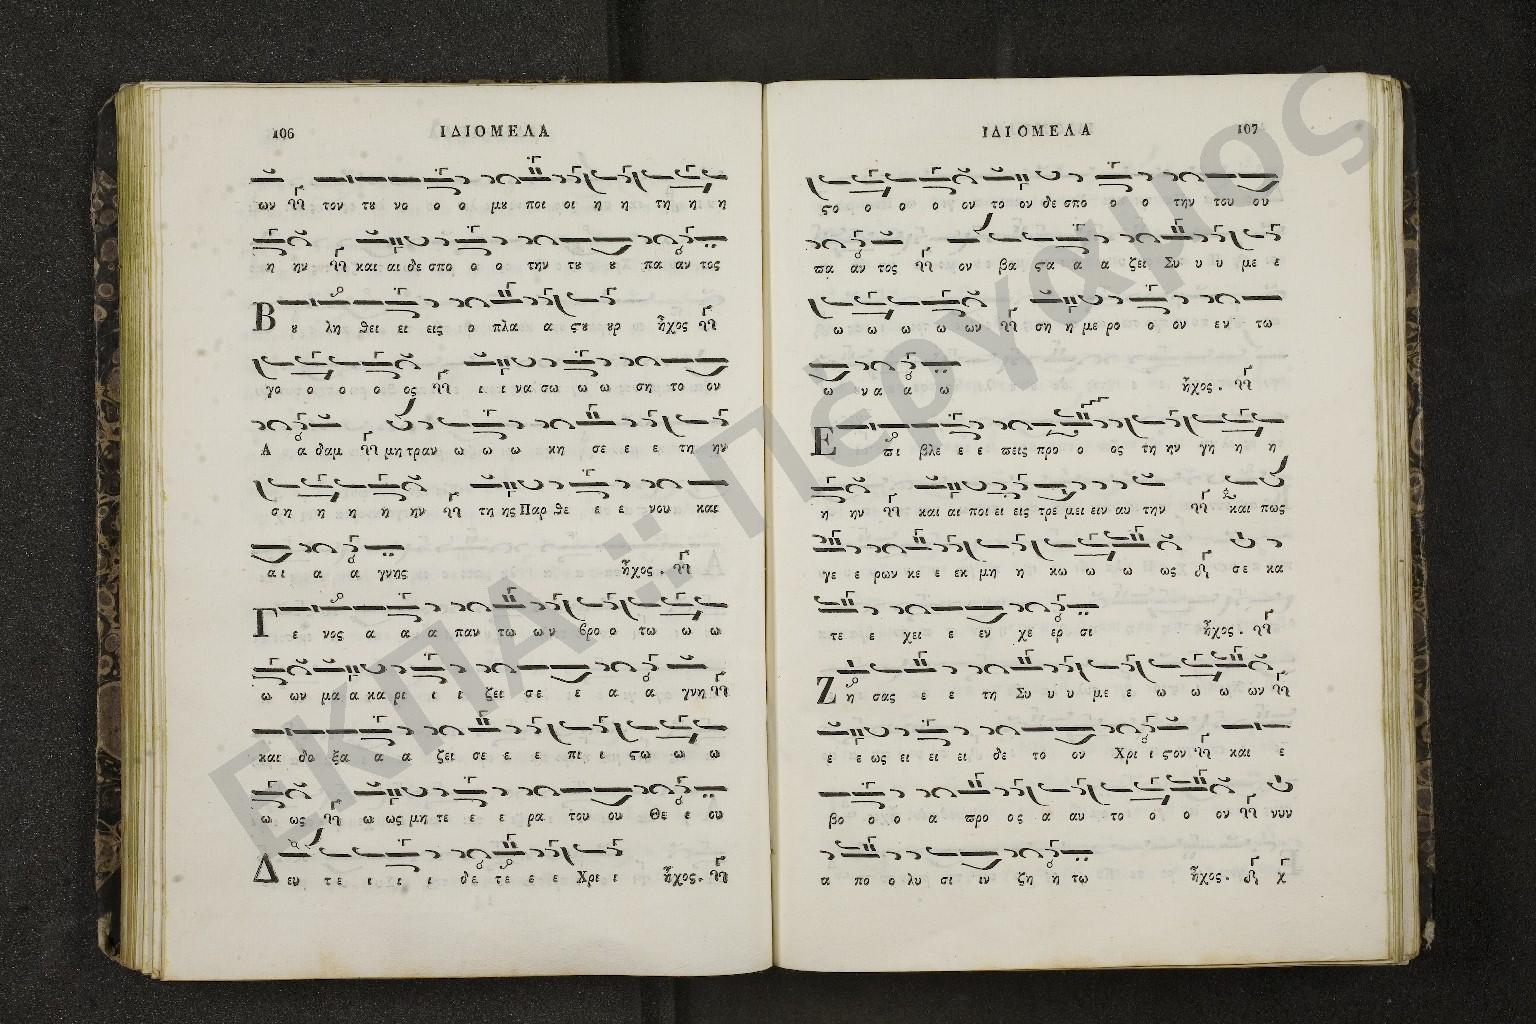 106
ΙΔΙΟΜΕΛΑ
ων τον τȣ νο ο ο μȣ ποι οι η η τη η η
η ην και αι δε σπο ο ο την τȣ ȣ πα αν τος
Β ȣ λη θει ει εις ο πλα α ϛȣ ȣρ ἦχος
γο ο ο ο ος ι ι να σω ω ω ση το ον
Α α δαμ μη τραν ω ω ω κη σε ε ε τη ην
ση η η η ην τη ης Παρ θε ε ε νου και
αι α α γνης ἦχος.
Γ ε νος α α α παν τω ων βρο ο τω ω ω
ω ων μα α κα ρι ι ι ζει σε ε α α γνη
και δο ξα α α ζει σε ε ε πι ι ϛω ω ω
ω ως ω ως μη τε ε ε ρα του ου Θε ε ου
Δ ευ τε ι ι ι δε τε ε ε Χρι ι ἦχος.
ΙΔΙΟΜΕΛΑ
107
ϛο ο ο ο ον το ον δε σπο ο ο την του ου
πα αν τος ον βα ϛα α α ζει Συ υ υ με ε
ω ω ω ω ων ση η με ρο ο ον εν τω
ω να α ω ἦχος.
Ε πι βλε ε ε πεις προ ο ος τη ην γη η η
η ην και αι ποι ει εις τρε μει ειν αυ την και πως
γε ε ρων κε ε εκ μη η κω ω ω ως σε κα
τε ε χει ε εν χε ερ σι ἦχος.
Ζ η σας ε ε τη Συ υ υ με ε ω ω ω ων
ε ε ως ει ει ει δε το ον Χρι ι ϛον και ε
βο ο ο α προ ος α αυ το ο ο ον νυν
α πο ο λυ σι ιν ζη η τω ἦχος.
ΕΚΠΑ :: Πέργαμος